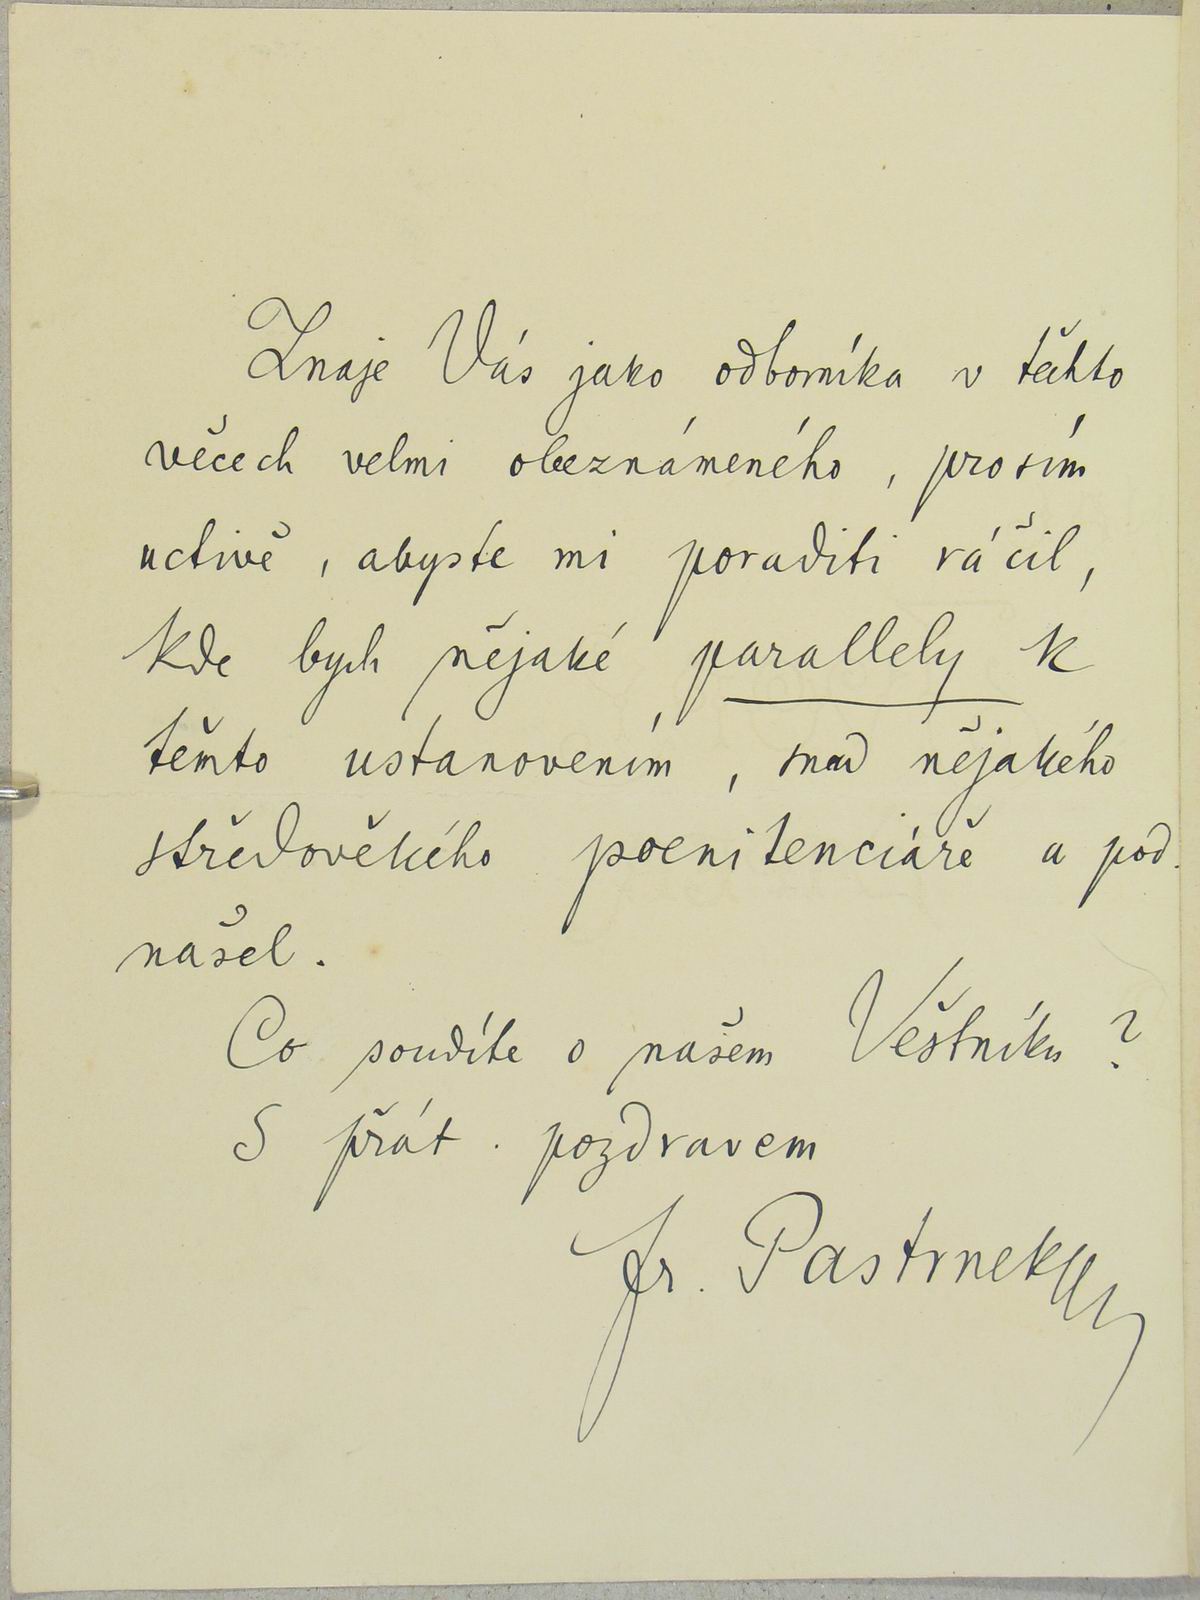 Znaje Vás jako odborníka v těchto
věcech velmi obeznámeného, prosím
uctivě, abyste mi poraditi ráčil,
kde bych nějaké parallely k
těmto ustanovením, snad nějakého
středověkého poenitenciáře a pod.
našel.
Co soudíte o našem Věstníku?
S přát. pozdravem
Fr. Pastrnek